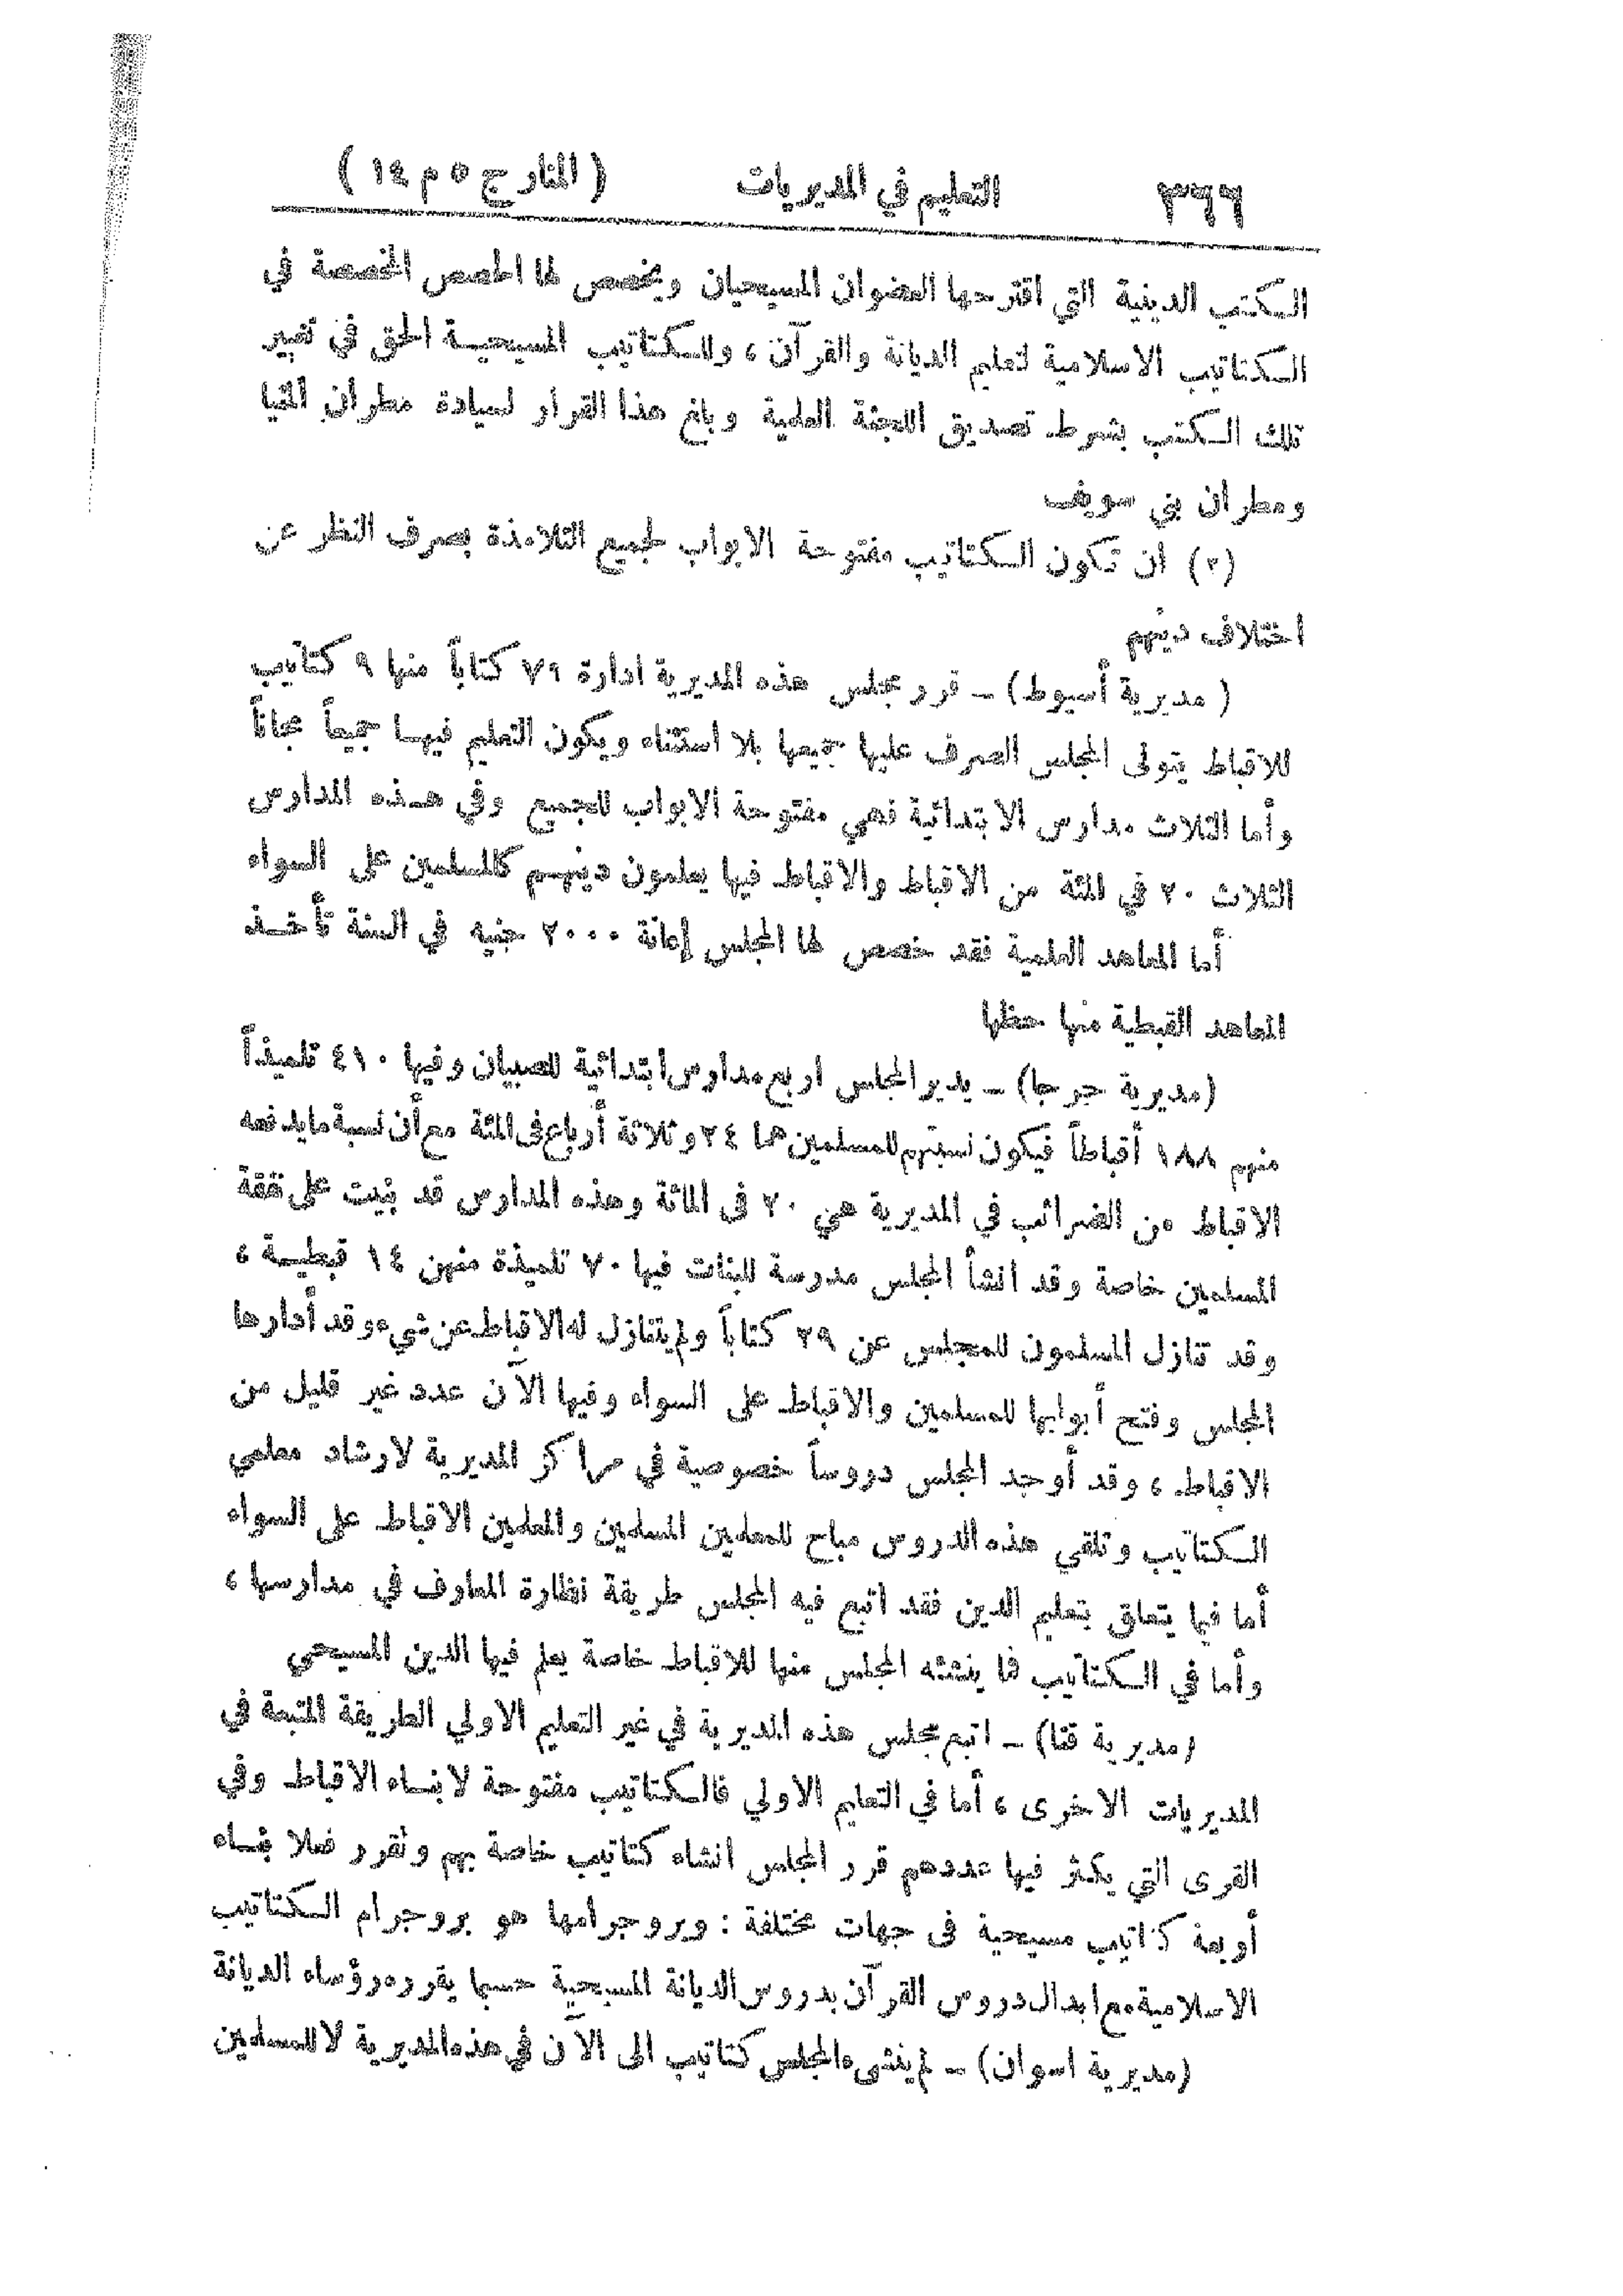 ٣٦٦ التعليم في المديريات ( المنار ج ٥ م ١٤ )
الكتب الدينية التي اقترحها العضوان المسيحيان ويخصص لها الحصص المخصصة في
الكتاتيب الاسلامية لتعليم الديانة والقرآن ، وللكتاتيب المسيحية الحق في تغيير
تلك الكتب بشرط تصديق اللجنة العلمية وبلغ هذا القرار لسيادة مطران المنيا
ومطران بني سويف
(٢) أن تكون الكتاتيب مفتوحة الابواب لجميع التلامذة بصرف النظر عن
اختلاف دينهم
( مديرية أسيوط) – قرر مجلس هذه المديرية ادارة ٧٩ كتاباً منها ٩ كتاتيب
للاقباط يتولى المجلس الصرف عليها جميعها بلا استثناء ويكون التعليم فيها جميعاً مجاناً
وأما الثلاث مدارس الابتدائية فهي مفتوحة الابواب للجميع وفي هذه المدارس
الثلاث ٢٠ في المئة من الاقباط والاقباط فيها يعلمون دينهم كالمسلمين على السواء
أما المعاهد العلمية فقد خصص لها المجلس إعانة ٢٠٠٠ جنيه في السنة تأخذ
المعاهد القبطية منها حظها
(مديرية جرجا) – يدير المجلس اربع مدارس ابتدائية للصبيان وفيها ٤١٠ تلميذاً
منهم ١٨٨ أقباطاً فيكون نسبتهم للمسلمين هما ٢٤ وثلاثة أرباع فى المئة مع أن نسبة مايدفعه
الاقباط من الضرائب في المديرية هي ٢٠ فى المائة وهذه المدارس قد بنيت على نفقة
المسلمين خاصة وقد انشأ المجلس مدرسة للبنات فيها ٧٠ تلميذة منهن ١٤ قبطية ،
وقد تنازل المسلمون للمجلس عن ٢٩ كتاباً ولم يتنازل له الاقباط عن شيء وقد أدارها
المجلس وفتح أبوابها للمسلمين والاقباط على السواء وفيها الآن عدد غير قليل من
الاقباط ، وقد أوجد المجلس دروساً خصوصية في مراكز المديرية لارشاد معلمي
الكتاتيب وتلقي هذه الدروس مباح للمعلمين المسلمين والمعلمين الاقباط على السواء
أما فيما يتعلق بتعليم الدين فقد اتبع فيه المجلس طريقة نظارة المعارف في مدارسها ،
وأما في الكتاتيب فما ينشئه المجلس منها للاقباط خاصة يعلم فيها الدين المسيحي
(مديرية قنا) – اتبع مجلس هذه المديرية في غير التعليم الاولي الطريقة المتبعة في
المديريات الاخرى ، أما في التعليم الاولي فالكتاتيب مفتوحة لابناء الاقباط وفي
القرى التي يكثر فيها عددهم قرر المجلس انشاء كتاتيب خاصة بهم وتقرر فعلا بناء
أربعة كتاتيب مسيحية فى جهات مختلفة : وبروجرامها هو بروجرام الكتاتيب
الاسلامية مع ابدال دروس القرآن بدروس الديانة المسيحية حسبما يقرره رؤساء الديانة
(مديرية اسوان) – لم ينشيء المجلس كتاتيب الى الآن في هذه المديرية لا للمسلمين